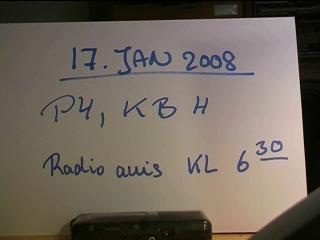 17. JAN 2008
P4, KBH
Radio avis KL 6 30